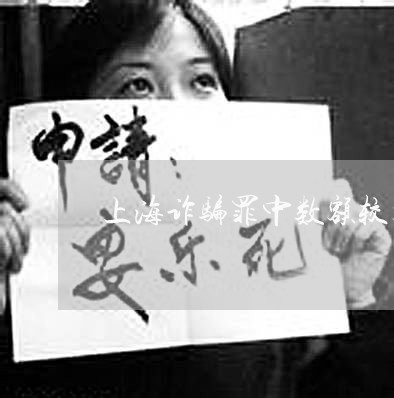 申請：
上海诈骗罪中数额较
安乐死